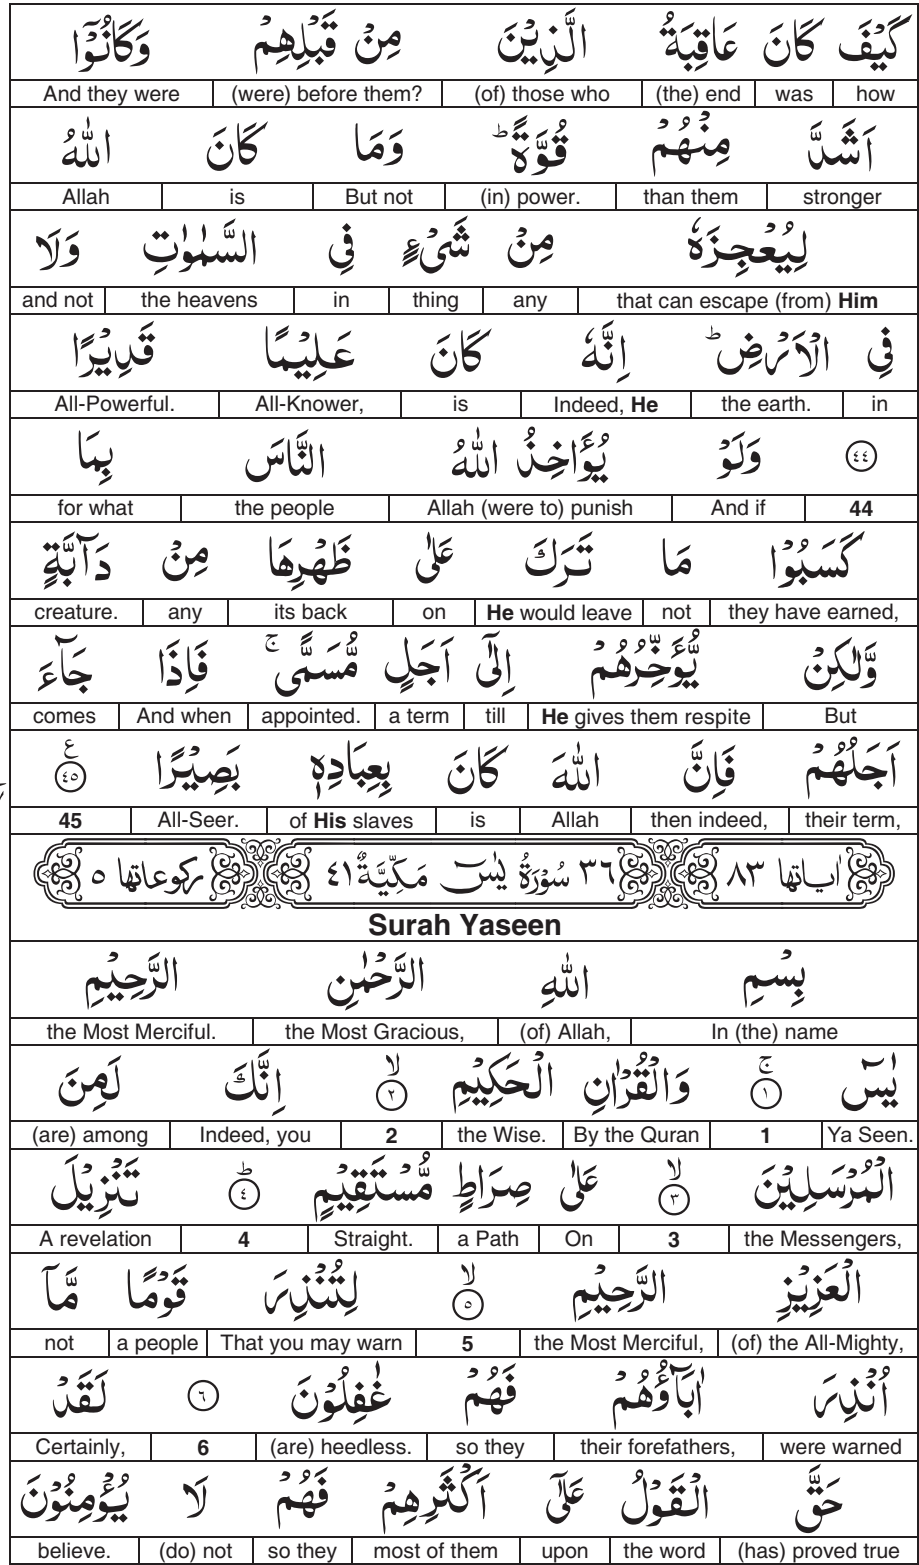 كَيْفَ كَانَ عَاقِبَةُ الَّذِيْنَ مِنْ قَبْلِهِمْ وَكَانُوْۤا
how was (the) end (of) those who (were) before them? And they were
اَشَدَّ مِنْهُمْ قُوَّةً ؕ وَمَا كَانَ اللّٰهُ
stronger than them (in) power. But not is Allah
لِيُعْجِزَهٗ مِنْ شَىْءٍ فِى السَّمٰوٰتِ وَلَا
that can escape (from) Him any thing in the heavens and not
فِى الْاَرْضِ ؕ اِنَّهٗ كَانَ عَلِيْمًا قَدِيْرًا
in the earth. Indeed, He is All-Knower, All-Powerful.
٤٤ وَلَوْ يُؤَاخِذُ اللّٰهُ النَّاسَ بِمَا
44 And if Allah (were to) punish the people for what
كَسَبُوْا مَا تَرَكَ عَلٰى ظَهْرِهَا مِنْ دَآبَّةٍ
they have earned, not He would leave on its back any creature.
وَّلٰكِنْ يُّؤَخِّرُهُمْ اِلٰٓى اَجَلٍ مُّسَمًّى ۚ فَاِذَا جَآءَ
But He gives them respite till a term appointed. And when comes
اَجَلُهُمْ فَاِنَّ اللّٰهَ كَانَ بِعِبَادِهٖ بَصِيْرًا ٤٥ ع
their term, then indeed, Allah is of His slaves All-Seer. 45
اٰياتها ٨٣ ٣٦ سُوْرَةُ يٰسٓ مَكِّيَّةٌ ٤١ ركوعاتها ٥
Surah Yaseen
بِسْمِ اللّٰهِ الرَّحْمٰنِ الرَّحِيْمِ
In (the) name (of) Allah, the Most Gracious, the Most Merciful.
يٰسٓ ١ ۚ وَالْقُرْاٰنِ الْحَكِيْمِ ٢ ۙ اِنَّكَ لَمِنَ
Ya Seen. 1 By the Quran the Wise. 2 Indeed, you (are) among
الْمُرْسَلِيْنَ ٣ ۙ عَلٰى صِرَاطٍ مُّسْتَقِيْمٍ ٤ ؕ تَنْزِيْلَ
the Messengers, 3 On a Path Straight. 4 A revelation
الْعَزِيْزِ الرَّحِيْمِ ٥ ۙ لِتُنْذِرَ قَوْمًا مَّاۤ
(of) the All-Mighty, the Most Merciful, 5 That you may warn a people not
اُنْذِرَ اٰبَآؤُهُمْ فَهُمْ غٰفِلُوْنَ ٦ لَقَدْ
were warned their forefathers, so they (are) heedless. 6 Certainly,
حَقَّ الْقَوْلُ عَلٰٓى اَكْثَرِهِمْ فَهُمْ لَا يُؤْمِنُوْنَ
(has) proved true the word upon most of them so they (do) not believe.